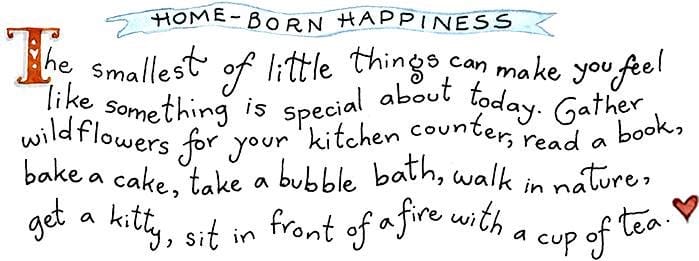 HOME-BORN HAPPINESS
The smallest of little things can make you feel
like something is special about today. Gather
wildflowers for your kitchen counter, read a book,
bake a cake, take a bubble bath, walk in nature,
get a kitty, sit in front of a fire with a cup of tea.